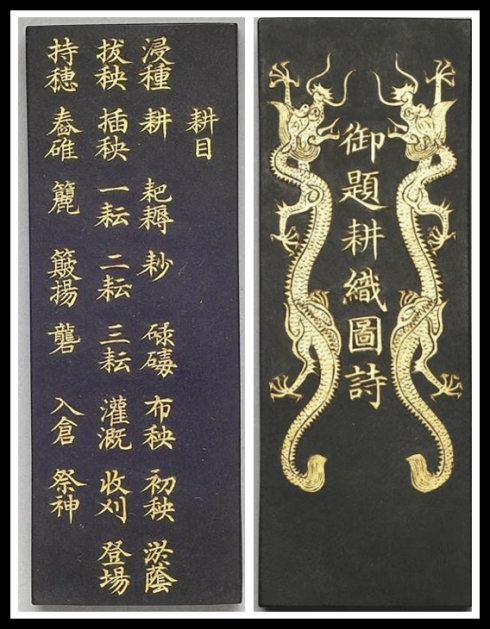 御題耕織圖詩
耕目
浸種 耕 耙耨 耖 碌碡 布秧 初秧 淤蔭
拔秧 插秧 一耘 二耘 三耘 灌溉 收刈 登場
持穗 舂碓 籭 簸揚 礱 入倉 祭神